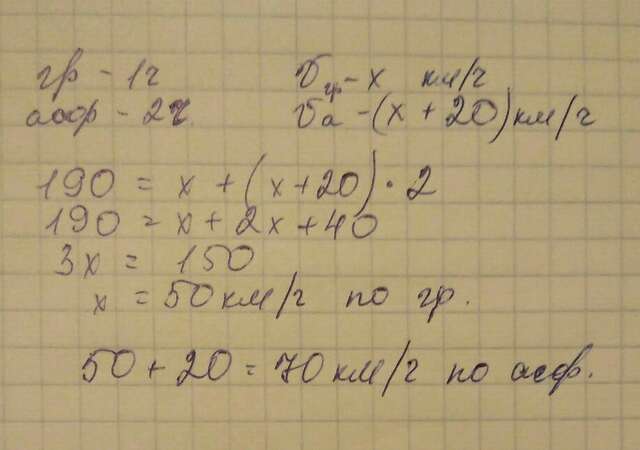 гр - 1ч
Vгр - x км/ч
асф - 2ч.
Vа - (x + 20) км/ч
190 = x + (x+20) · 2
190 = x + 2x + 40
3x = 150
x = 50 км/ч по гр.
50 + 20 = 70 км/ч по асф.